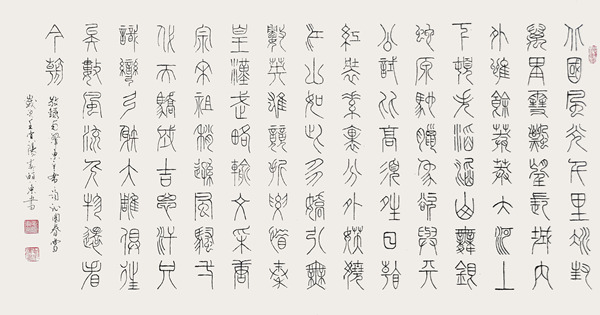 北國風光千里冰封
萬里雪飄望長城內
外惟餘莽莽大河上
下頓失滔滔山舞銀
蛇原馳蠟象欲與天
公試比高須晴日看
紅裝素裹分外妖嬈
江山如此多嬌引無
數英雄競折腰惜秦
皇漢武略輸文采唐
宗宋祖稍遜風騷一
代天驕成吉思汗只
識彎弓射大雕俱往
矣數風流人物還看
今朝
沁園春雪
書